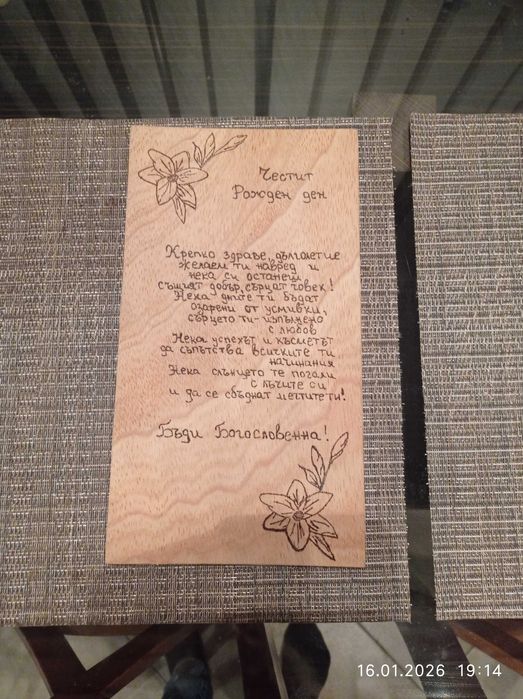 Честит
Рожден ден
Крепко здраве, дълголетие
желаем ти навред и
нека си останеш,
същият добър, сърцат човек!
Нека дните ти бъдат
озарени от усмивки,
сърцето ти - изпълнено
с любов
Нека успехът и късметът
да съпътства всичките ти
начинания
Нека слънцето те погали
с лъчите си
и да се сбъднат мечтите ти!
Бъди Богословенна!
16.01.2026 19:14